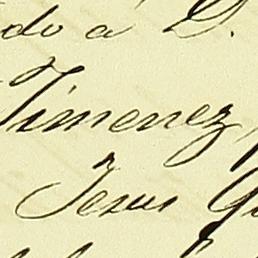 do á D.
Jimenez,
Jesus G